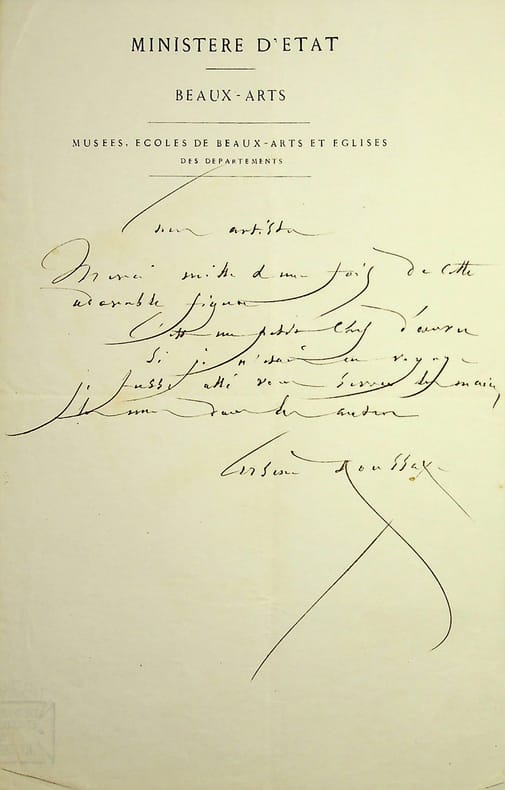 MINISTERE D'ETAT
BEAUX-ARTS
MUSEES, ECOLES DE BEAUX-ARTS ET EGLISES
DES DEPARTEMENTS
artiste
Merci mille d'une fois de cette
adorable figure
C'est un petit chef d'œuvre
Si je n'étais en voyage
je fusse allé vous serrer les mains,
Arsène Houssaye